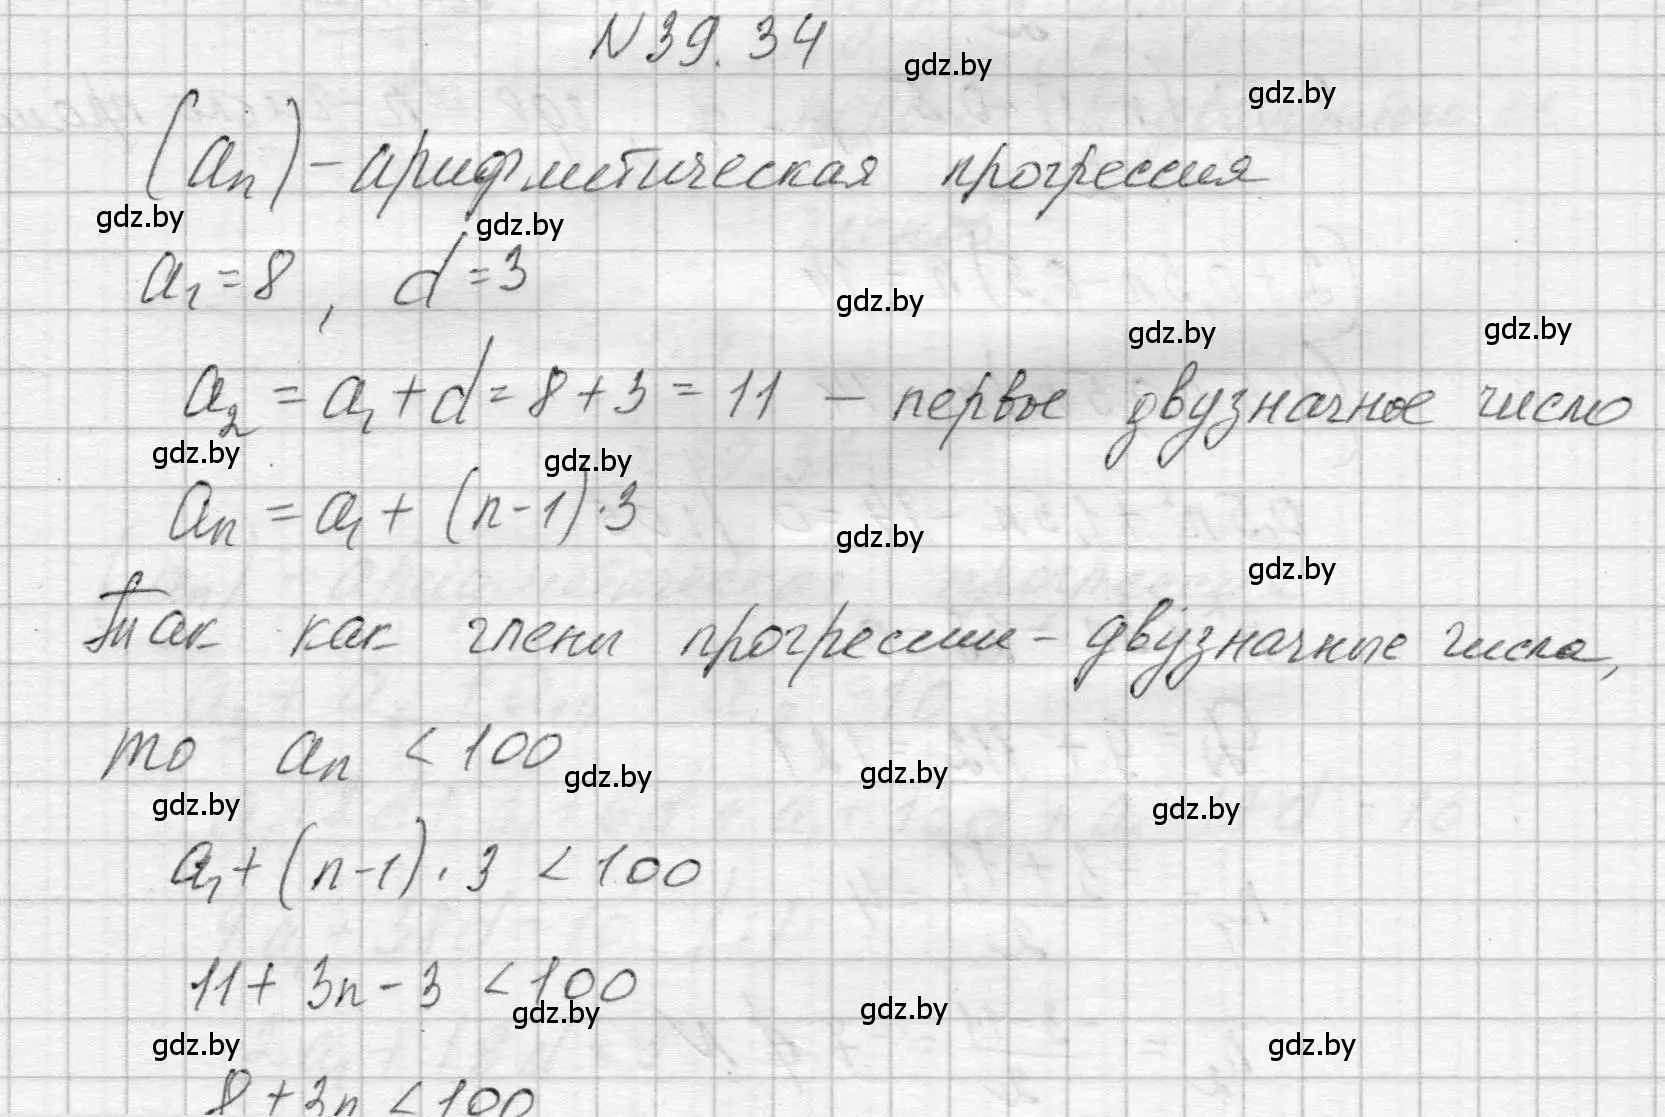 N 39.34
gdz.by
gdz.by
(aₙ) - арифметическая прогрессия
gdz.by
gdz.by
a₁ = 8, d = 3
gdz.by
gdz.by
gdz.by
a₂ = a₁ + d = 8 + 3 = 11 – первое двузначное число
gdz.by
gdz.by
aₙ = a₁ + (n-1)·3
gdz.by
gdz.by
Так как члены прогрессии - двузначные числа,
то aₙ < 100
gdz.by
gdz.by
gdz.by
gdz.by
a₁ + (n-1)·3 < 100
11 + 3n - 3 < 100
gdz.by
gdz.by
gdz.by
gdz.by
8 + 3n < 100